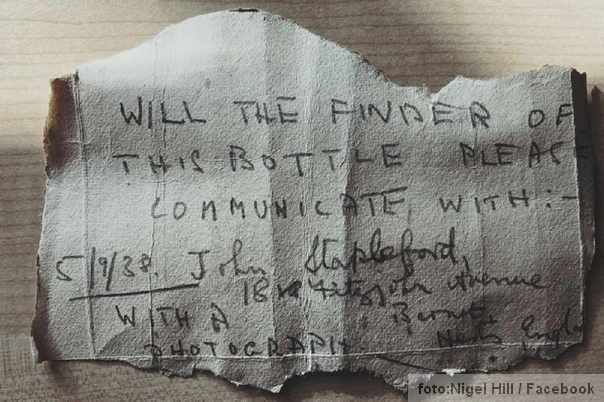 WILL THE FINDER OF
THIS BOTTLE PLEASE
COMMUNICATE, WITH:-
5/9/38. John Stapleford,
Fitzjohn Avenue
WITH A Barnet,
PHOTOGRAPH. Herts, Engl
foto:Nigel Hill / Facebook